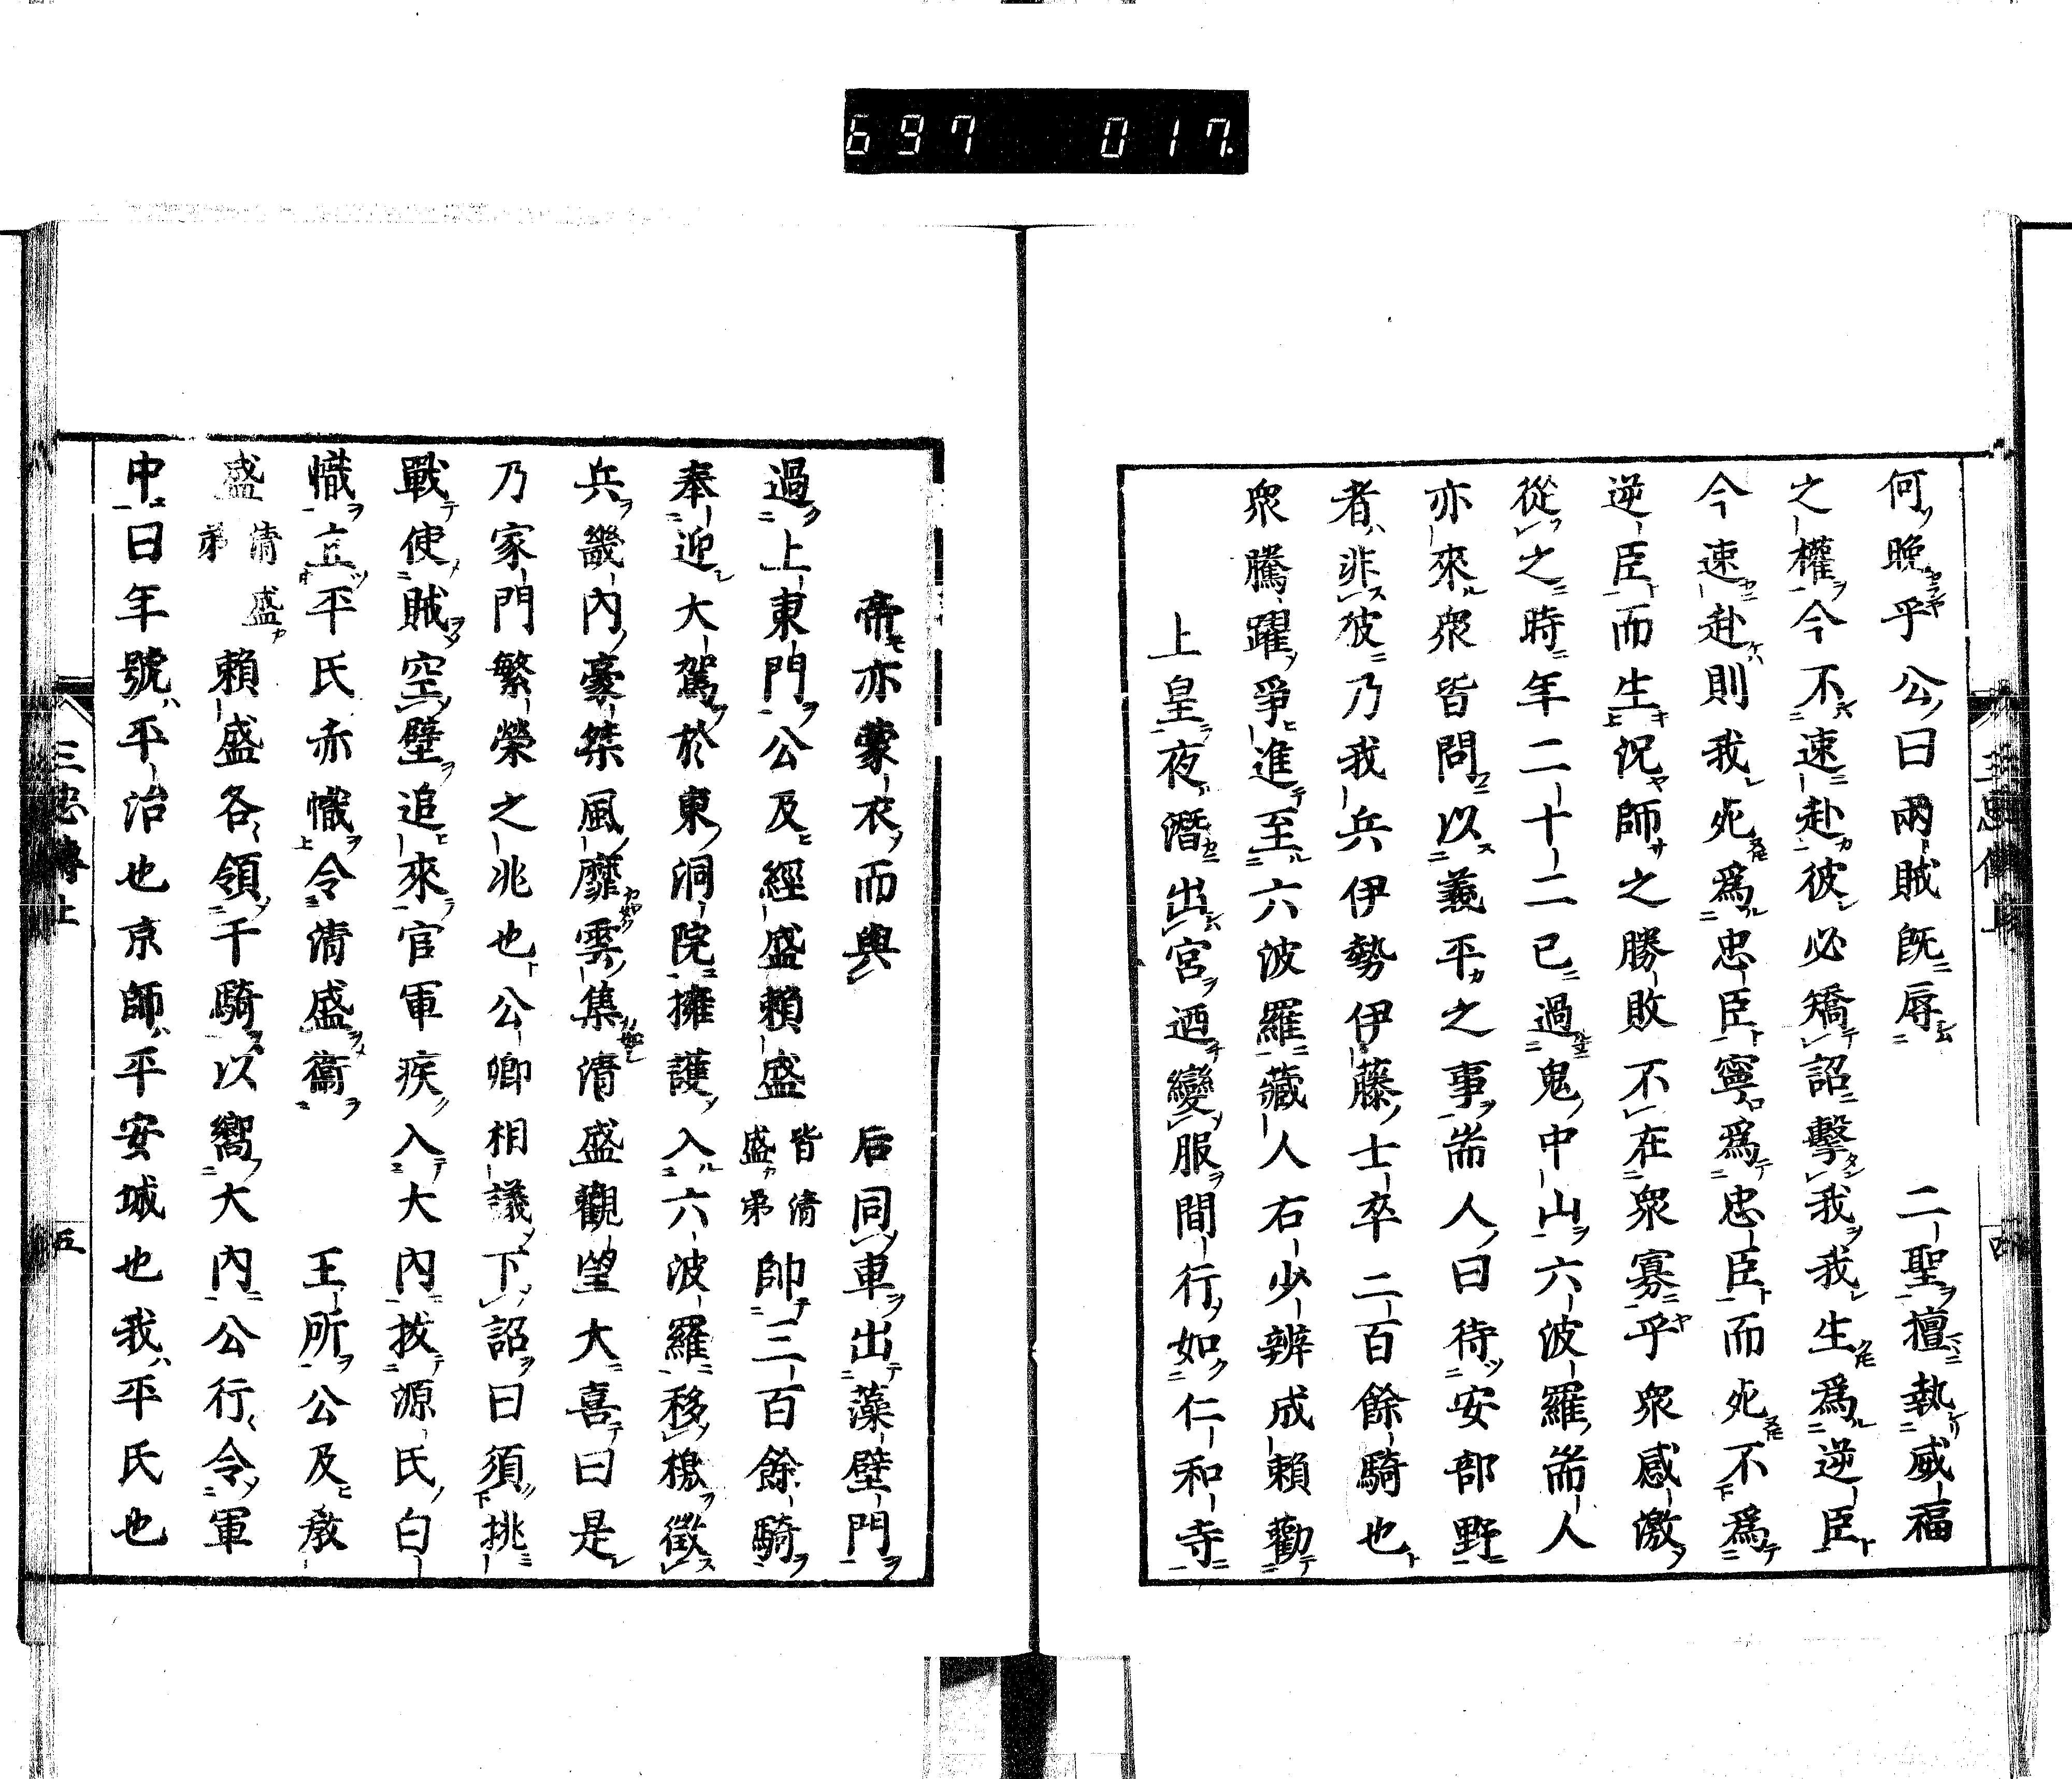 697 017
何晚乎公曰兩賊既辱 二聖擅執威福
之權今不速赴彼必矯詔擊我我生爲逆臣
今速赴則我死爲忠臣寧爲忠臣而死不爲
逆臣而生況師之勝敗不在衆寡乎衆感激
從之時年二十二已過鬼中山六波羅耑人
亦來衆皆問以義平之事耑人曰待安部野
者非彼乃我兵伊勢伊藤士卒二百餘騎也
衆騰躍爭進至六波羅藏人右少辨成賴勸
上皇夜潛出宮迺變服間行如仁和寺
三忠傳上 四
帝亦蒙衣而與 后同車出藻壁門
過上東門公及經盛賴盛皆清盛弟帥三百餘騎
奉迎大駕於東洞院擁護入六波羅移檄徵
兵畿內豪桀風靡雲集清盛觀望大喜曰是
乃家門繁榮之兆也公卿相議下詔曰須挑
戰使賊空壁追來官軍疾入大內拔源氏白
幟立平氏赤幟令清盛衞 王所公及教
盛清盛弟賴盛各領千騎以嚮大內公行令軍
中曰年號平治也京師平安城也我平氏也
三忠傳上 五